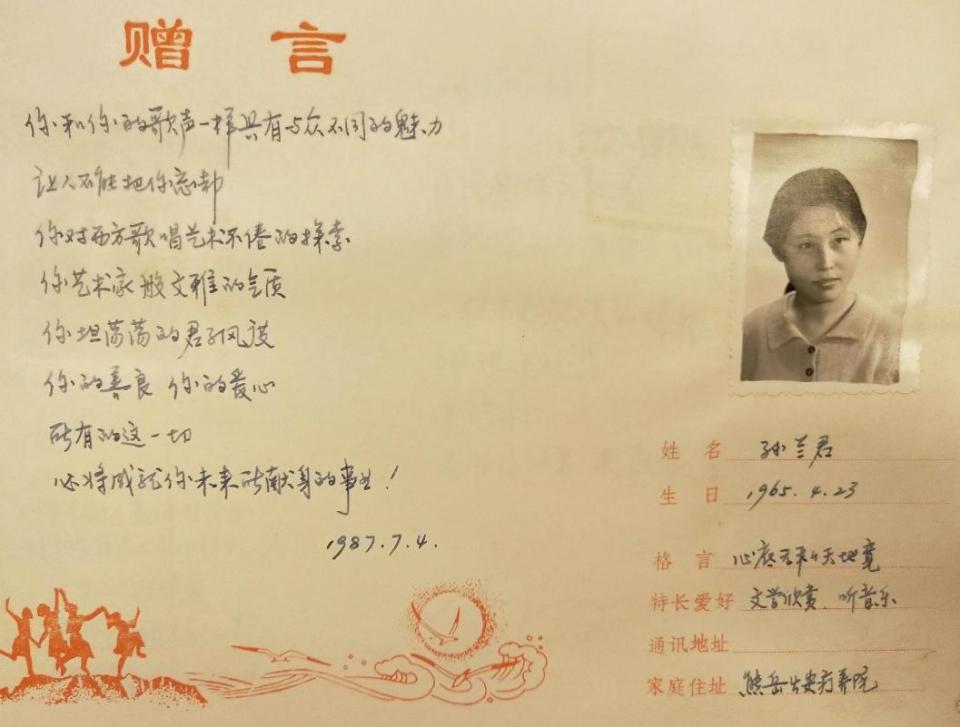 赠言
你和你的歌声一样具有与众不同的魅力
让人不能把你忘却
你对西方歌唱艺术不倦的探索
你艺术家般文雅的气质
你坦荡荡的君子风度
你的善良 你的爱心
所有的这一切
必将成就你未来所献身的事业!
1987.7.4.
姓名 孙兰君
生日 1965.4.23
格言 心底无私天地宽
特长爱好 文学欣赏、听音乐
通讯地址
家庭住址 熊岳公安疗养院